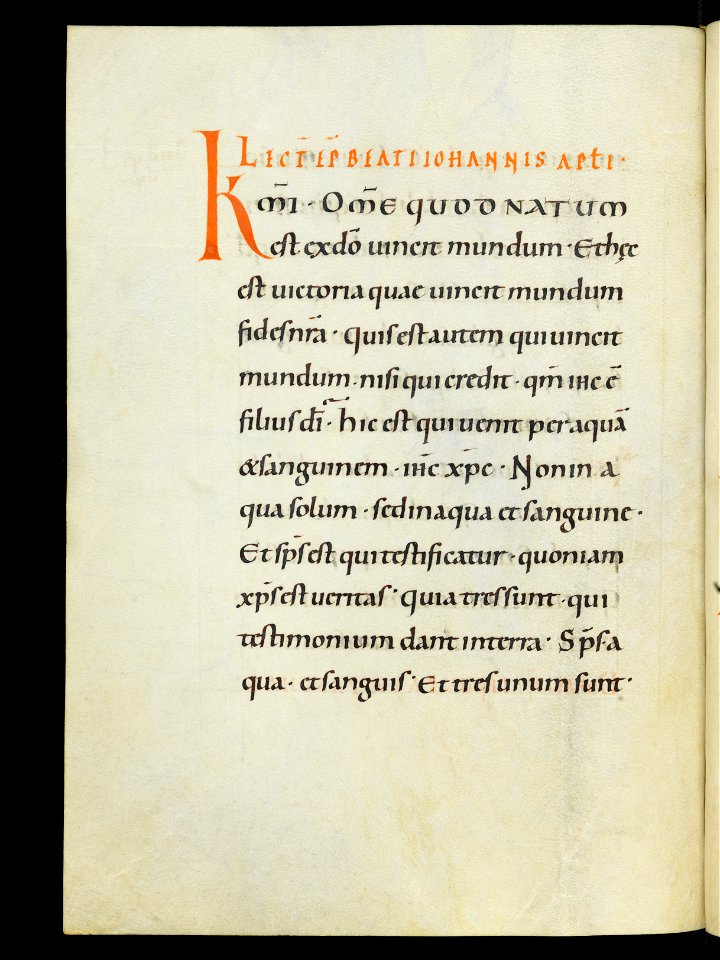 LECT̄ EP̄ BEATI IOHANNIS APƚI·
Km̄i · Om̄E QUOD NATUM
est ex dō uincit mundum · Et hęc
est uictoria quae uincit mundum
fides nr̄a · Quis est autem qui uincit
mundum · nisi qui credit · qm̄ ihc ē
filius dī · hic est qui uenit per aquā
& sanguinem · ihc̄ xp̄c · Non in a
qua solum · sed in aqua et sanguine ·
Et sp̄s est qui testificatur · quoniam
xp̄s est ueritas · quia tres sunt · qui
testimonium dant in terra · Sp̄s · a
qua · et sanguis · Et tres unum sunt ·